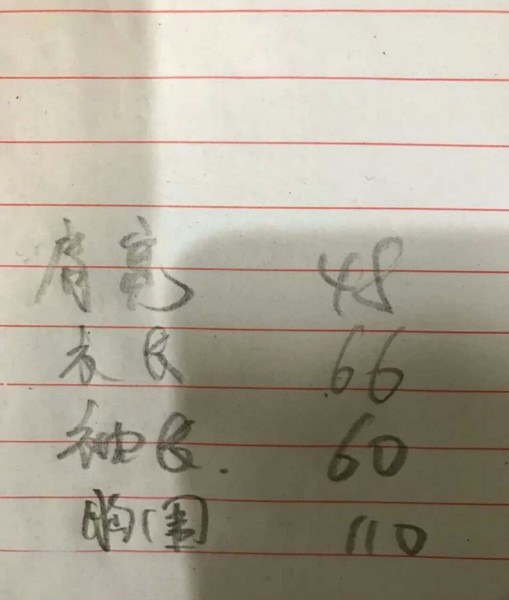 肩宽 48
衣长 66
袖长. 60
胸围 110